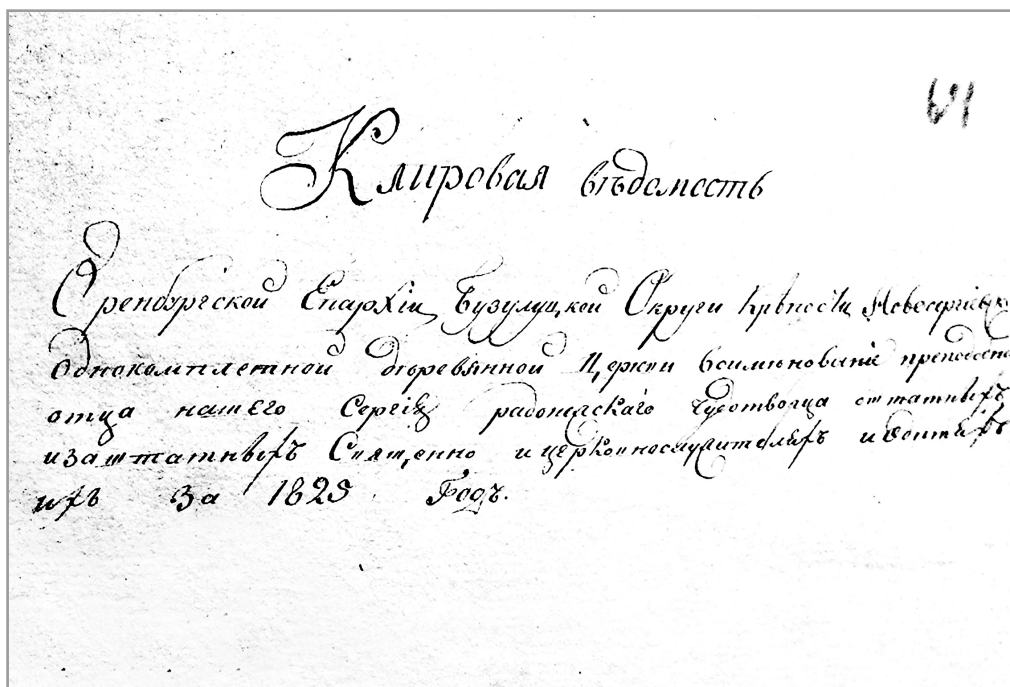 61
Клировая вѣдомость
Оренбургской Епархіи Бузулуцкой Округи крѣпости Новосергіевск
однокомплетной деревянной Церкви воимѣнованіе преподобна
отца нашего Сергія радонежскаго Чудотворца о штатныхъ
и заштатныхъ Священно и церковнослужителяхъ и о дѣтяхъ
ихъ за 1829 Годъ.